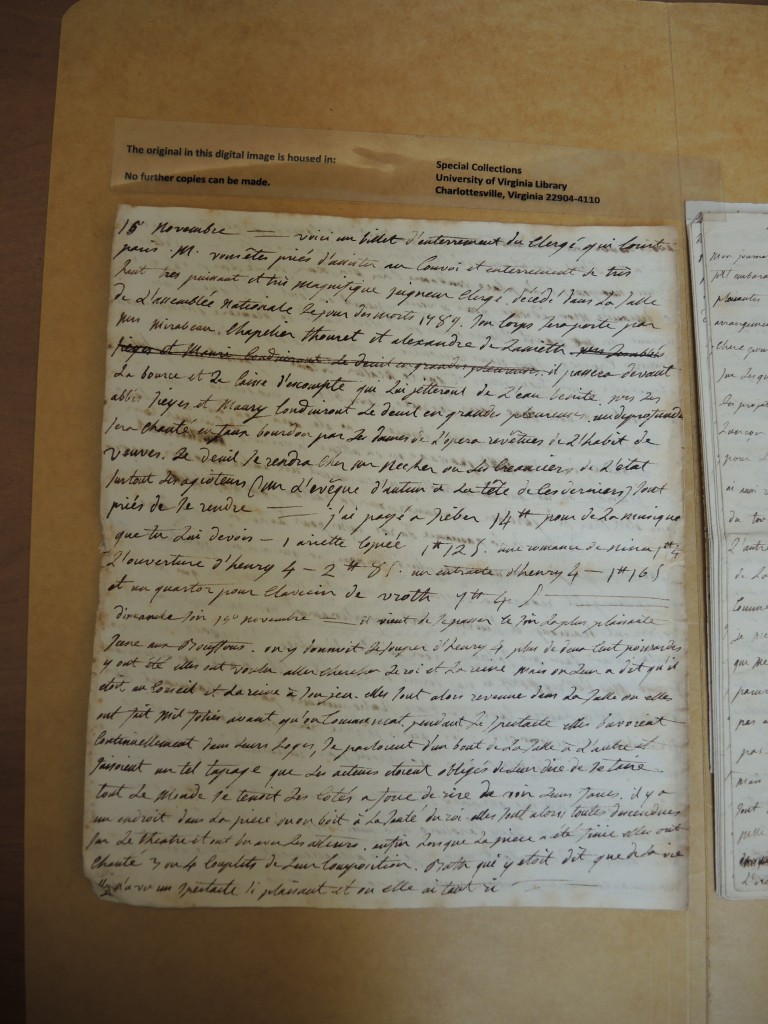 The original in this digital image is housed in:
No further copies can be made.
Special Collections
University of Virginia Library
Charlottesville, Virginia 22904-4110
15 novembre — voici un billet d'enterrement du Clergé qui Court
paris. M. vous êtes priés d'assister au Convoi et enterrement de tres
haut tres puissant et très magnifique seigneur Clergé, décédé dans La salle
de L'assemblée Nationale le jour des morts 1789. Son Corps sera porté par
Mrs Mirabeau, Chapelier Thouret et alexandre de Lameth
sieyes et Mauri Conduiront Le deuil en grandes pleureuses. il passera devant
La bource et La Caisse d'escompte qui Lui jetteront de L'eau benite, Mrs Les
abbés sieyes et Maury Conduiront Le deuil en grandes pleureuses. un deprofundis
sera Chanté en faux bourdon par Les dames de L'opera revêtues de L'habit de
veuves. Le deuil se rendra Chez Mr necker ou Les Creanciers de L'état
surtout Les agioteurs (Mr L'evêque d'autun à La tête de Ces derniers) sont
priés de se rendre — j'ai payé a sieber 14# pour de La musique
que tu Lui devois — 1 ariette Copiée 1# 12 s. une romance de nina 1# 4
L'ouverture d'henry 4 — 2# 8 s. un entracte d'henry 4 — 1# 16 s
et un quartor pour Clavecin de 4 s
dimanche soir novembre — il vient de se passer Le soir La plus plaisante
scene aux Bouffons. on y donnoit Le souper d'henry 4. plus de deux Cent poissardes
y ont été elles ont voulu aller chercher Le roi et La reine Mais on Leur a dit qu'il
étoit au Conseil et La reine à son jeu. elles sont alors revenue dans La salle ou elles
ont fait Mil folies avant qu'on Commencat. pendant Le spectacle elles
Continuellement dans Leurs Loges, se parloient d'un bout de La salle à L'autre et
faisoient un tel tapage que Les acteurs étoient obligés de Leur dire de se taire
tout Le Monde se tenoit Les Cotés a force de rire de voir Leurs joies. il y a
un endroit dans La piece ou on boit à La santé du roi elles sont alors toutes descendues
sur Le theatre et ont bu avec Les acteurs. enfin Lorsque La piece a été finie elles ont
Chanté 3 ou 4 Couplets de Leur Composition. qui y etoit dit que de La vie
n'a vu un spectacle si plaisant et ou elle ai tant ri